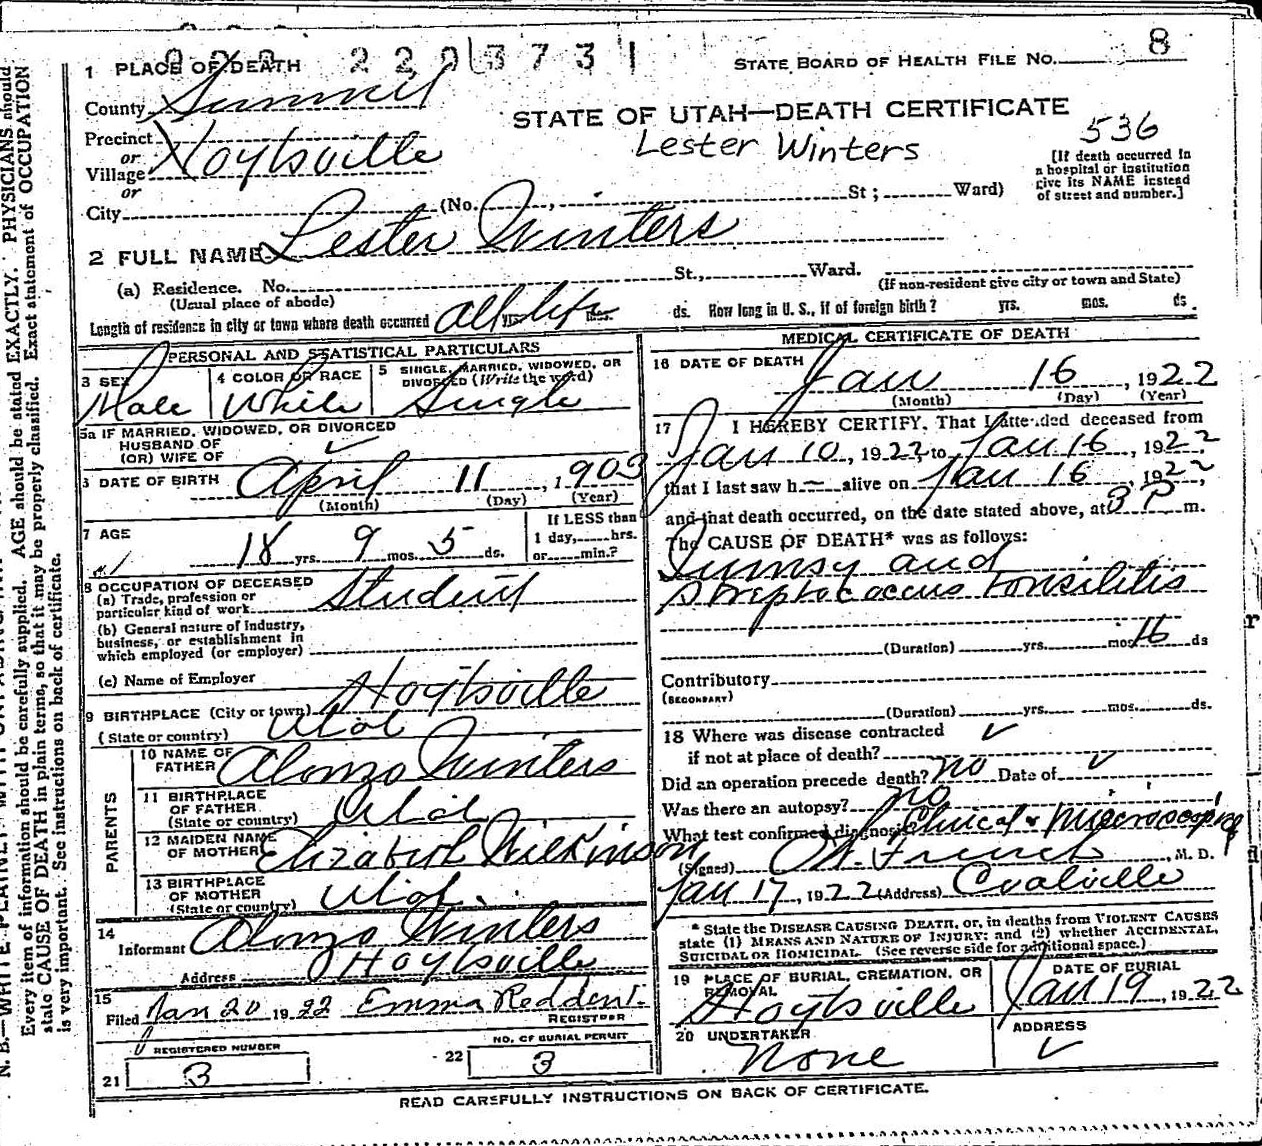 1 PLACE OF DEATH 229 3731 STATE BOARD OF HEALTH FILE NO. 8
County Summit
STATE OF UTAH—DEATH CERTIFICATE
Precinct
or
Village Hoytsville
or
Lester Winters 536
[If death occurred in
a hospital or institution
give its NAME instead
of street and number.]
City (No. , St; Ward)
2 FULL NAME Lester Winters
(a) Residence. No. St., Ward.
(Usual place of abode)
(If non-resident give city or town and State)
Length of residence in city or town where death occurred all life yrs. mos. ds. How long in U. S., if of foreign birth? yrs. mos. ds
PERSONAL AND STATISTICAL PARTICULARS
3 SEX Male
4 COLOR OR RACE White
5 SINGLE, MARRIED, WIDOWED, OR
DIVORCED (Write the word) Single
5a IF MARRIED, WIDOWED, OR DIVORCED
HUSBAND OF
(OR) WIFE OF
6 DATE OF BIRTH April 11, 1903
(Month) (Day) (Year)
7 AGE 18 yrs. 9 mos. 5 ds.
If LESS than
1 day, hrs.
or min.?
8 OCCUPATION OF DECEASED
(a) Trade, profession or
particular kind of work Student
(b) General nature of Industry,
business, or establishment in
which employed (or employer)
(c) Name of Employer
9 BIRTHPLACE (City or town) Hoytsville
(State or country) Utah
PARENTS
10 NAME OF
FATHER Alonzo Winters
11 BIRTHPLACE
OF FATHER
(State or country) Utah
12 MAIDEN NAME
OF MOTHER Elizabeth Wilkinson
13 BIRTHPLACE
OF MOTHER
(State or country) Utah.
14
Informant Alonzo Winters
Address Hoytsville
15
Filed Jan 20 1922 Emma Redden
REGISTRER
REGISTERED NUMBER
21 3
NO. OF BURIAL PERMIT
22 3
MEDICAL CERTIFICATE OF DEATH
16 DATE OF DEATH Jan 16, 1922
(Month) (Day) (Year)
17 I HEREBY CERTIFY, That I attended deceased from
Jan 10, 1922, to Jan 16, 1922,
that I last saw h alive on Jan 16, 1922,
and that death occurred, on the date stated above, at 3 P. m.
The CAUSE OF DEATH* was as follows:
and
Streptococcus Tonsilitis
(Duration) yrs. mos. 16 ds
Contributory
(SECONDARY)
(Duration) yrs. mos. ds.
18 Where was disease contracted
if not at place of death?
Did an operation precede death? no Date of
Was there an autopsy? no
What test confirmed diagnosis? Clinical &
(Signed) French, M. D.
Jan 17, 1922 (Address) Coalville
* State the DISEASE CAUSING DEATH, or, in deaths from VIOLENT CAUSES
state (1) MEANS AND NATURE OF INJURY; and (2) whether ACCIDENTAL,
SUICIDAL OR HOMICIDAL. (See reverse side for additional space.)
19 PLACE OF BURIAL, CREMATION, OR
REMOVAL
Hoytsville
DATE OF BURIAL
Jan 19, 1922
20 UNDERTAKER
None
ADDRESS
READ CAREFULLY INSTRUCTIONS ON BACK OF CERTIFICATE.
Every item of information should be carefully supplied. AGE should be stated EXACTLY. PHYSICIANS should
state CAUSE OF DEATH in plain terms, so that it may be properly classified. Exact statement of OCCUPATION
is very important. See instructions on back of certificate.